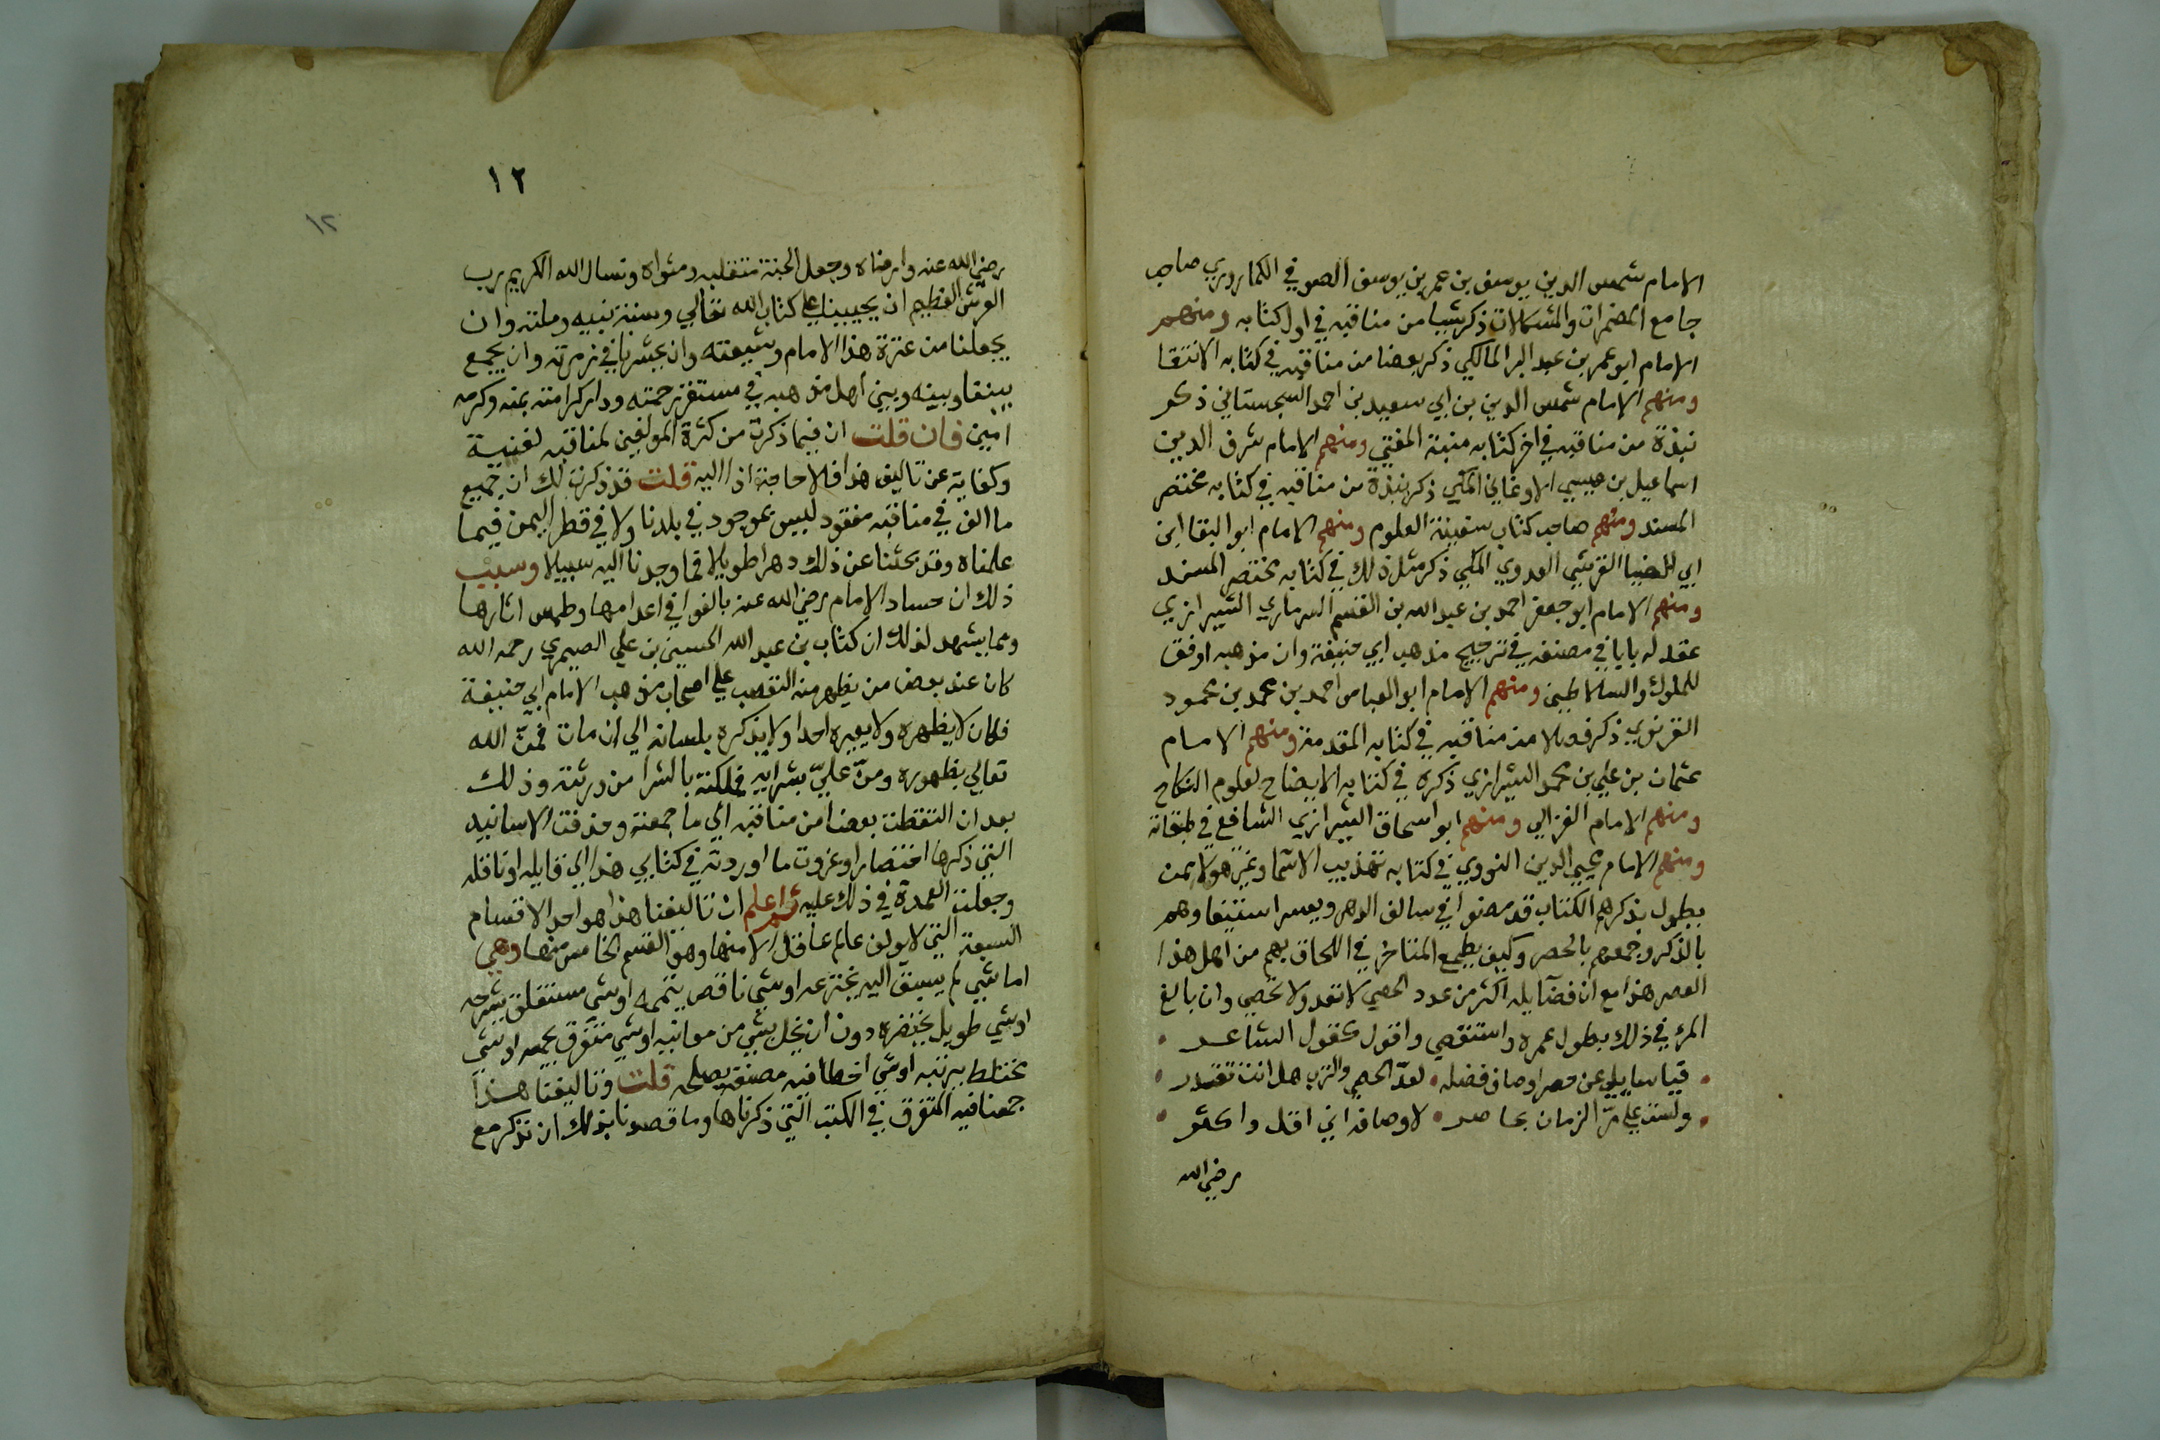 الامام شمس الدين يوسف بن عمر بن يوسف الصوفي الكماروري صاحب
جامع المضمرات والمشكلات ذكر شيا من مناقبه في اول كتابه ومنهم
الامام ابو عمر بن عبد البر المالكي ذكر بعضا من مناقبه في كتابه الانتقا
ومنهم الامام شمس الدين بن ابي سعيد بن احمد السجستاني ذكر
نبذة من مناقبه في اخر كتابه منية المفتي ومنهم الامام شرف الدين
اسماعيل بن عيسي الاوغاني المكي ذكر نبذة من مناقبه في كتابه مختصر
المسند ومنهم صاحب كتاب سفينة العلوم ومنهم الامام ابو البقا ابن
ابي الضيا القرشي العدوي المكي ذكر مثل ذلك في كتابه مختصر المسند
ومنهم الامام ابو جعفر احمد بن عبد الله بن القسم السرماري الشيرازي
عقد له بابا في مصنفه في ترجيح مذهب ابي حنيفة وان مذهبه اوفق
للملوك والسلاطين ومنهم الامام ابو العباس احمد بن محمد بن محمود
الغزنوي ذكر فصلا من مناقبه في كتابه المقدمة ومنهم الامام
عثمان بن علي بن محمد الشيرازي ذكره في كتابه الايضاح لعلوم النكاح
ومنهم الامام الغزالي ومنهم ابو اسحاق الشيرازي الشافعي في طبقاته
ومنهم الامام محيي الدين النووي في كتابه تهذيب الاسما وغير هولا ممن
يطول بذكرهم الكتاب قد مضوا في سالف الدهر ويعسر استيفاوهم
بالذكر وجمعهم بالحصر وكيف يطمع المتاخر في اللحاق بهم من اهل هذا
العصر هذا مع ان فضايله اكثر من عدد الحصي لا تعد ولا تحصي وان بالغ
المرء في ذلك بطول عمره واستقصي واقول كقول الشاعر
فيا سايلي عن حصر اوصاف فضله لعد الحصي والترب هل انت تقدر
ولست علي مر الزمان بحاصر لاوصافه اني اقل واكثر
رضي الله
١٢
١٢
رضي الله عنه وارضاه وجعل الجنة متقلبه ومثواه ونسال الله الكريم رب
العرش العظيم ان يحيينا علي كتاب الله تعالي وسنة نبيه وملته وان
يجعلنا من عترة هذا الامام وشيعته وان يحشرنا في زمرته وان يجمع
بيننا وبينه وبين اهل مذهبه في مستقر رحمته ودار كرامته بمنه وكرمه
امين فان قلت ان فيما ذكرت من كثرة المولفين لمناقبه لغنية
وكفاية عن تاليف هذا فلا حاجة اذا اليه قلت قد ذكرت لك ان جميع
ما الف في مناقبه مفقود ليس بموجود في بلدنا ولا في قطر اليمن فيما
علمناه وقد بحثنا عن ذلك دهرا طويلا فما وجدنا اليه سبيلا وسبب
ذلك ان حساد الامام رضي الله عنه بالغوا في اعدامها وطمس اثارها
ومما يشهد لذلك ان كتاب بن عبد الله الحسين بن علي الصيمري رحمه الله
كان عند بعض من يظهر منه التعصب علي اصحاب مذهب الامام ابي حنيفة
فكان لا يظهره ولا يعيره احدا ولا يذكره بلسانه الي ان مات فمن الله
تعالي بظهوره ومن علي بشرايه فملكته بالشرا من ورثته وذلك
بعد ان التقطت بعضا من مناقبه الي ما جمعته وحذفت الاسانيد
التي ذكرها اختصارا وعزوت ما اوردته في كتابي هذا الي قايله او ناقله
وجعلت العمدة في ذلك عليه ثم اعلم ان تاليفنا هذا هو احد الاقسام
السبعة التي لا يولف عالم عاقل الا منها وهو القسم الخامس منها وهي
اما شي لم يسبق اليه يخترعه او شي ناقص يتممه او شي مستغلق يشرحه
او شي طويل يختصره دون ان يخل بشي من معانيه او شي متفرق يجمعه او شي
مختلط يرتبه او شي اخطا فيه مصنفه يصلحه قلت وتاليفنا هذا
جمعنا فيه المتفرق في الكتب التي ذكرناها وما قصدنا بذلك ان نذكر مع